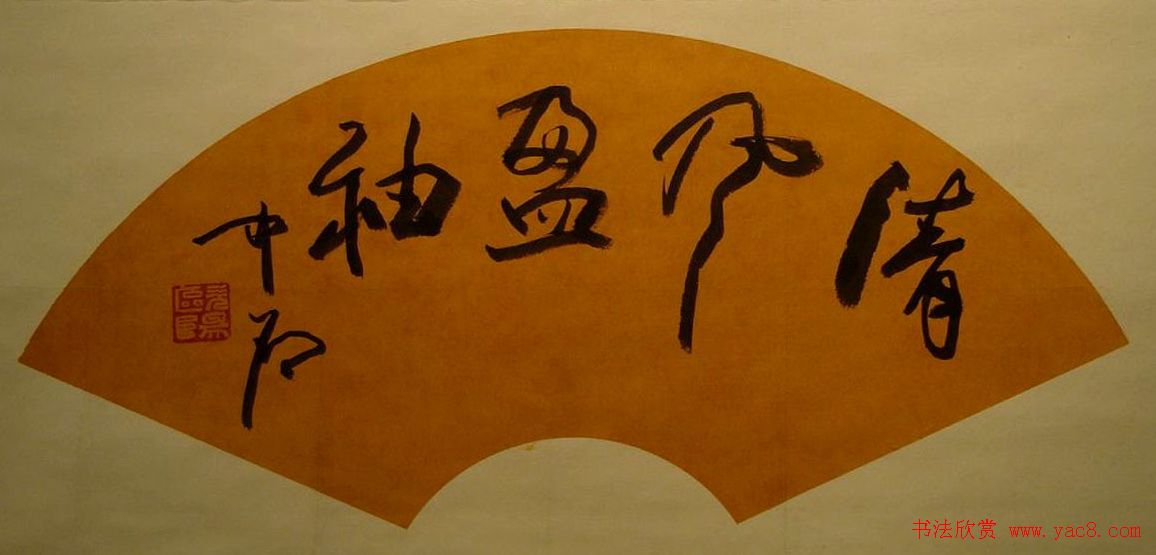 清风盈袖
中石
书法欣赏 www.yac8.com